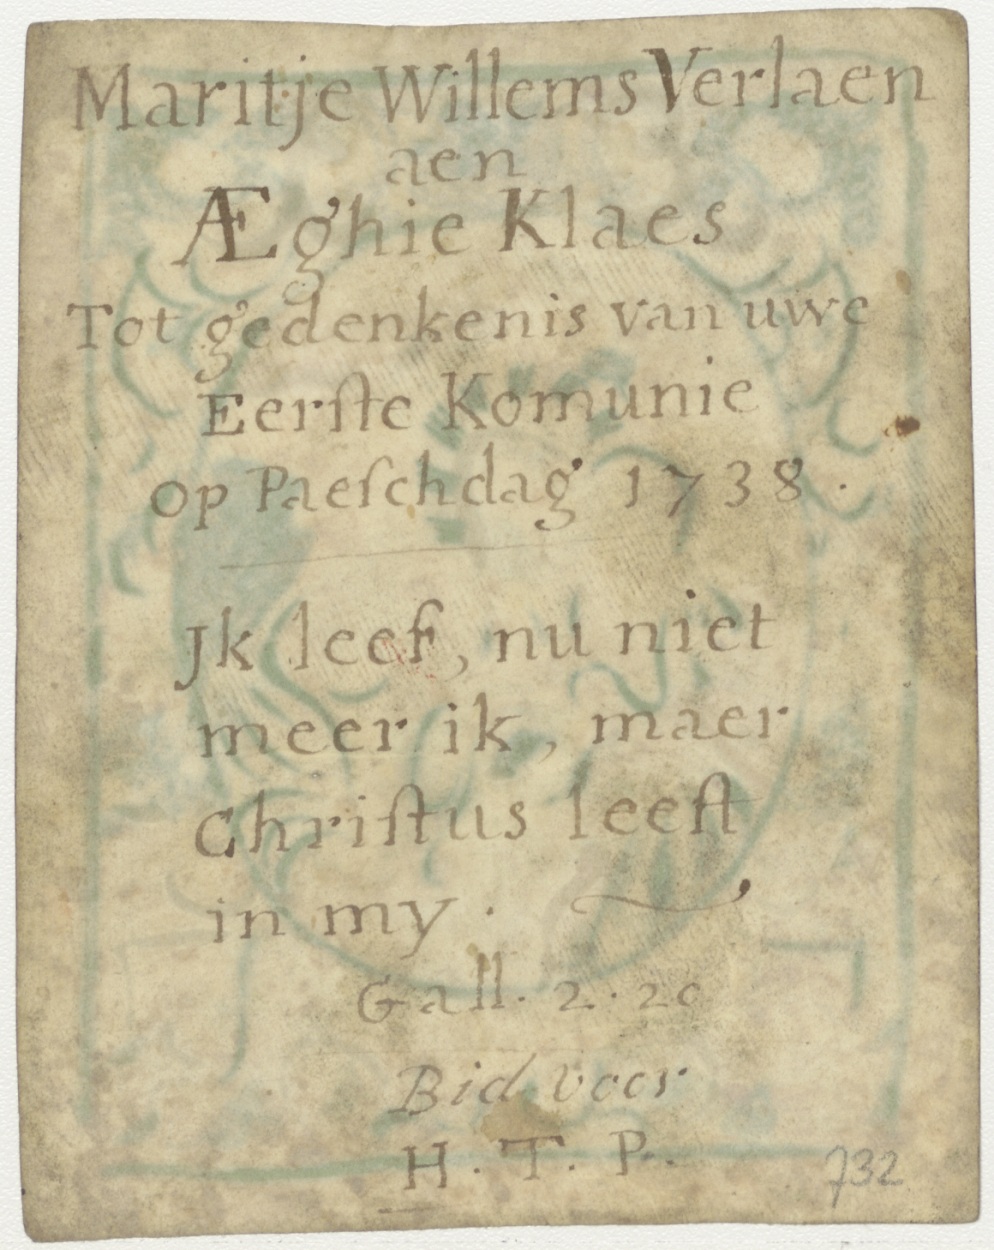 Maritje Willems Verlaen
aen
Æghie Klaes
Tot gedenkenis van uwe
Eerſte Komunie
op Paeſchdag 1738.
Jk leef, nu niet
meer ik, maer
Chriſtus leeft
in my.
Gall. 2. 20
Bid voor
H. T. P.
732